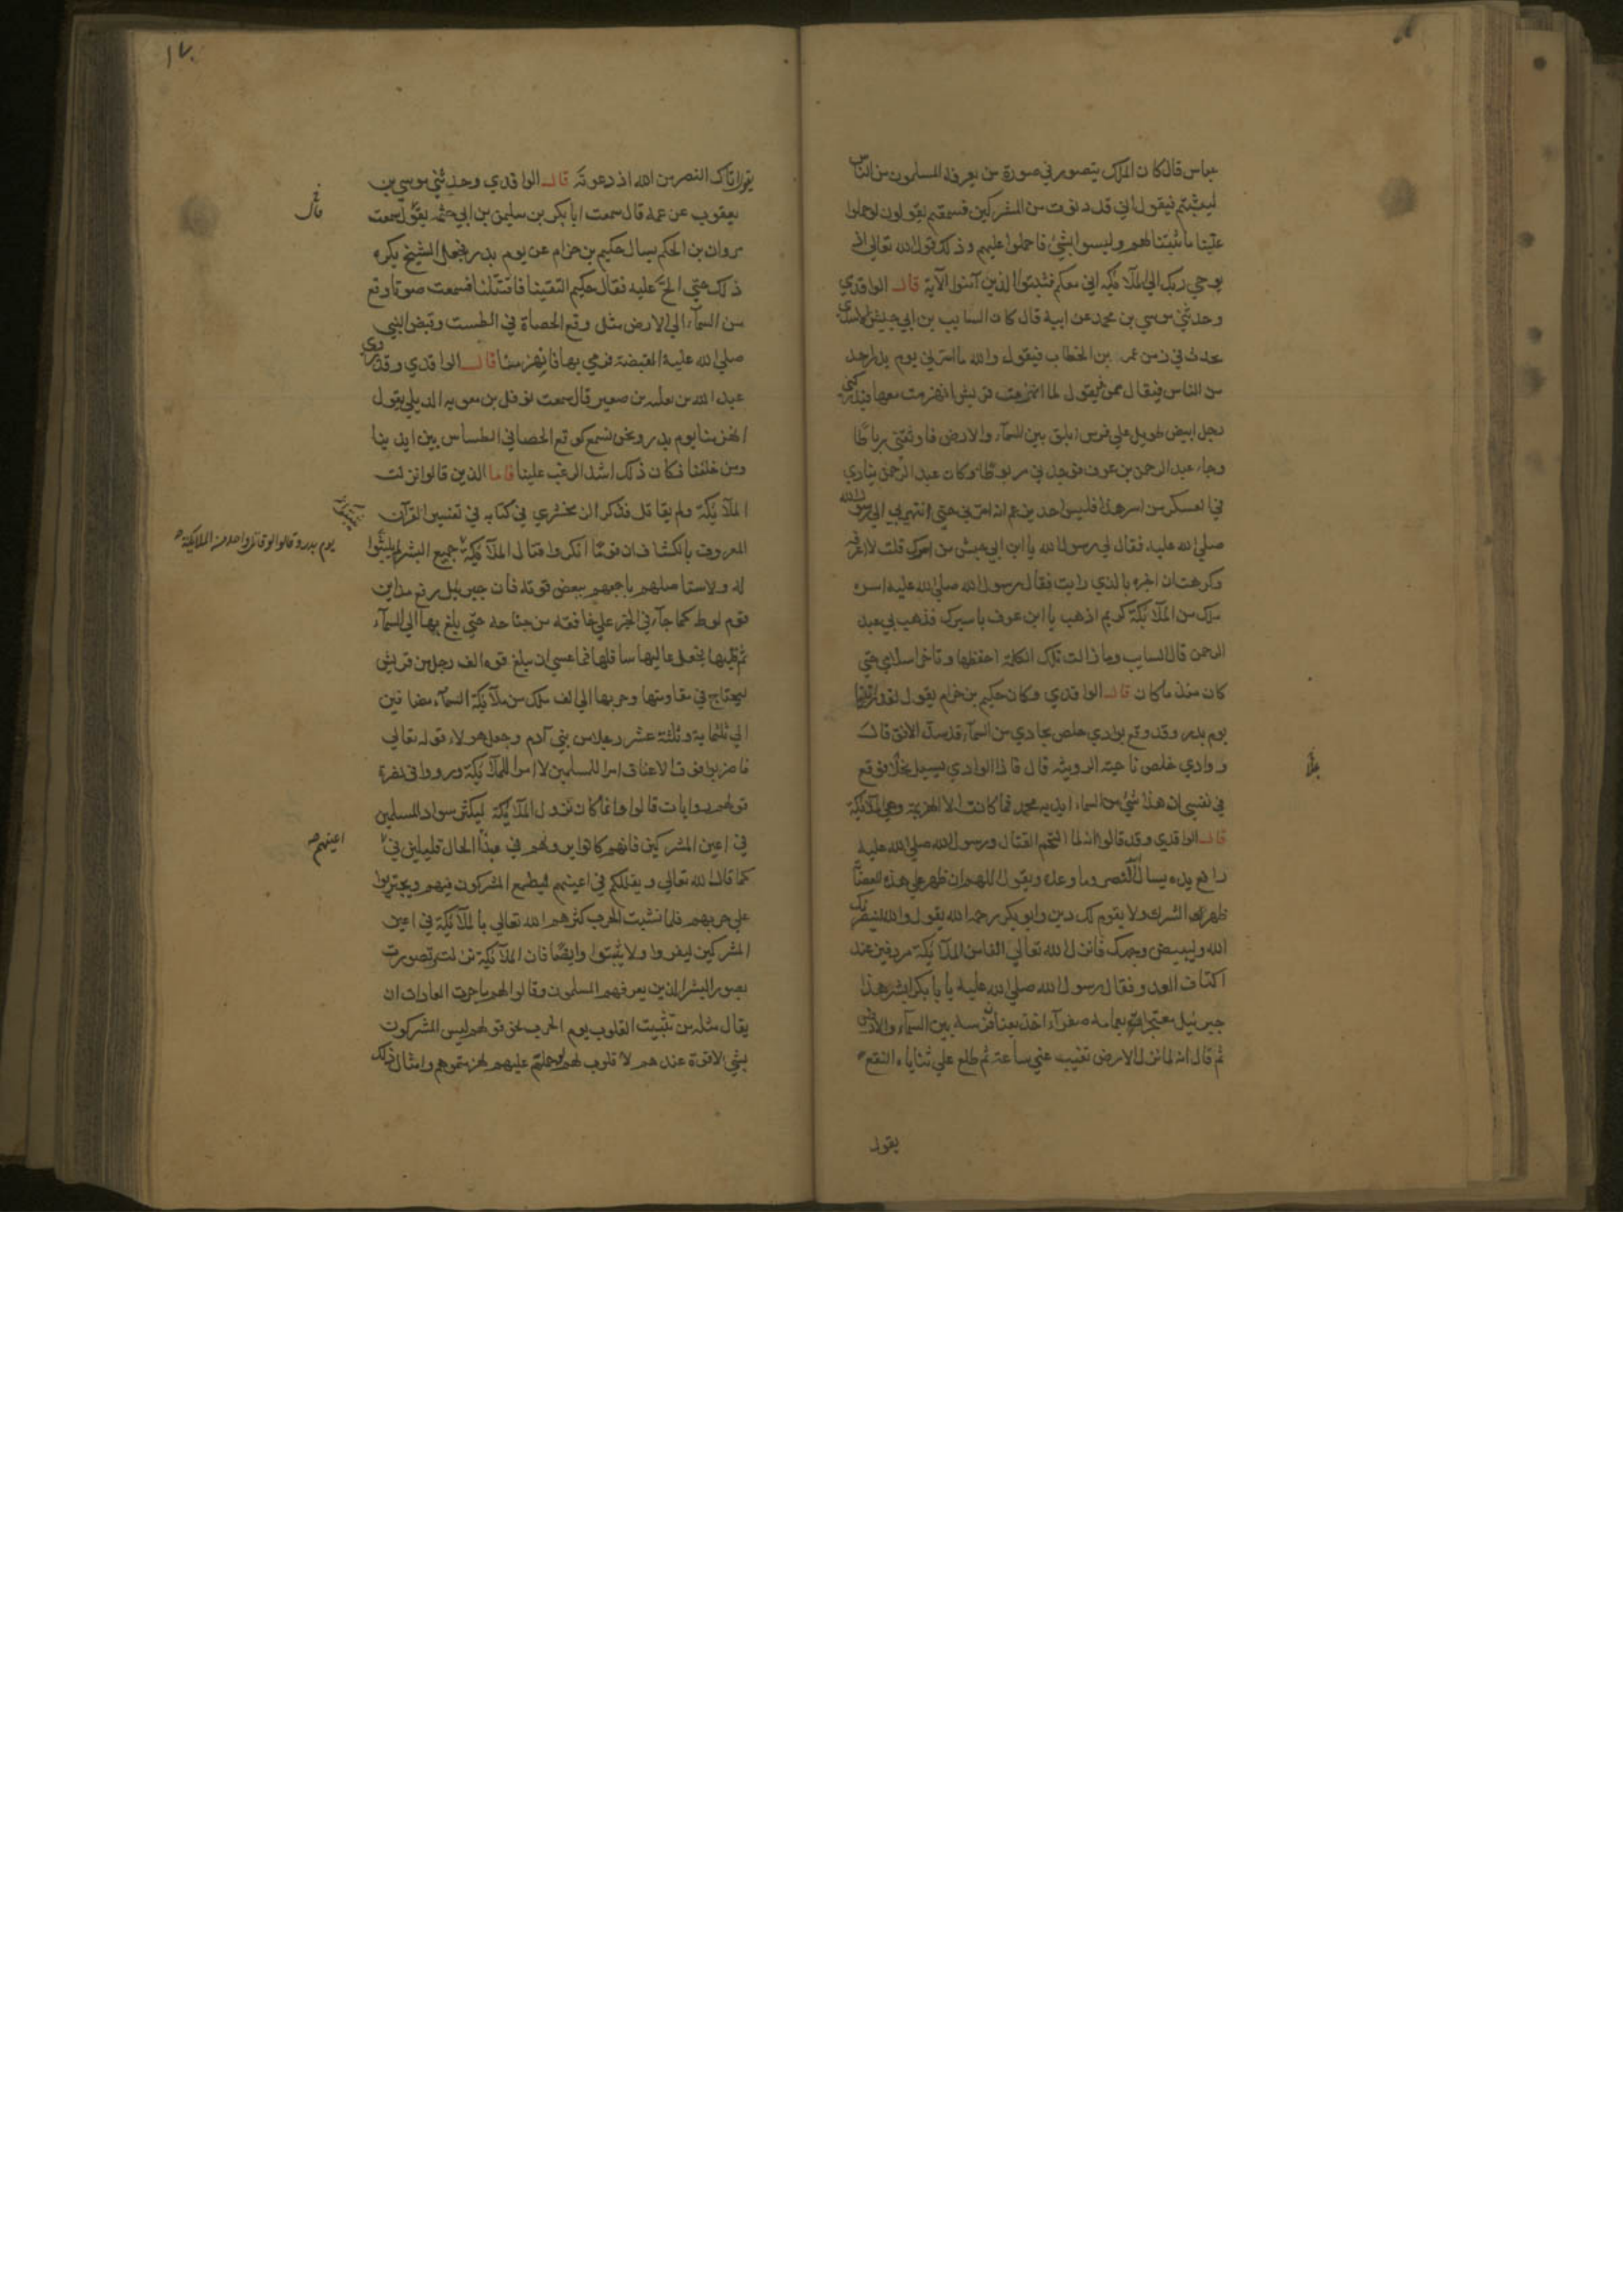 عباس قال كان الملك يتصور في صورة من يعرفه المسلمون من الناس
ليثبتهم فيقول اني قد دنوت من المشركين فسمعتهم يقولون لو حملوا
علينا ما ثبتنا لهم وليسوا بشيء فاحملوا عليهم وذلك قول الله تعالى اذ
يوحي ربك الى الملائكة اني معكم فثبتوا الذين آمنوا الآية قال الواقدي
وحدثني موسى بن محمد عن ابيه قال كان السايب بن ابي حبيش الاسدي
يحدث في زمن عمر بن الخطاب فيقول والله ما اسرني يوم بدر احد
من الناس فيقال فمن فيقول لما انهزمت قريش انهزمت معها فيدركني
رجل ابيض طويل على فرس ابلق بين السمآء والارض فاوثقني رباطا
وجاء عبد الرحمن بن عوف فوجدني مربوطا وكان عبد الرحمن ينادي
في العسكر من اسر هذا فليس احد يزعم انه اسرني حتى انتهى بي الى رسول الله
صلى الله عليه فقال لي رسول الله يا ابن ابي حبيش من اسرك قلت لا اعرفه
وكرهت ان اخبره بالذي رايت فقال رسول الله صلى الله عليه اسره
ملك من الملآئكة كريم اذهب يا ابن عوف باسيرك فذهب بي عبد
الرحمن قال السايب وما زالت تلك الكلمة احفظها وتاخر اسلامي حتى
كان منذ ما كان قال الواقدي وكان حكيم بن حزام يقول لقد رايتنا
يوم بدر وقد وقع بوادي خلص بجاد من السمآء قد سد الافق قال
ووادي خلص ناحية الرويثة قال فاذا الوادي يسيل نملا فوقع
نملا
في نفسي ان هذا شيء من السماء ايد به محمد فما كانت الا الهزيمة وهي الملآئكة
قال الواقدي وقد قالوا انه لما التحم القتال ورسول الله صلى الله عليه
رافع يديه يسال الله النصر وما وعده ويقول اللهم ان ظهر على هذه العصابة
ظهر الشرك ولا يقوم لك دين وابو بكر رحمه الله يقول والله لينصرنك
الله وليبيضن وجهك فانزل الله تعالى الفا من الملآئكة مردفين عند
اكتاف العدو فقال رسول الله صلى الله عليه يا ابا بكر ابشر هذا
جبرئيل معتجر بعمامة صفرآء اخذ بعنان فرسه بين السمآء والارض
ثم قال انه لما نزل الارض تغيب عني ساعة ثم طلع على ثناياه النقع
يقول
١٧٠
يقول اتاك النصر من الله اذ دعوته قال الواقدي وحدثني موسى بن
يعقوب عن عمه قال سمعت ابا بكر بن سليمن بن ابي حثمه يقول سمعت
مروان بن الحكم يسال حكيم بن حزام عن يوم بدر فجعل الشيخ يكره
ذلك حتى الح عليه فقال حكيم التقينا فاقتتلنا فسمعت صوتا وقع
من السمآء الى الارض مثل وقع الحصاة في الطست وقبض النبي
صلى الله عليه القبضة فرمى بها فانهزمنا قال الواقدي وقد روى
عبد الله بن ثعلبه بن صعير قال سمعت نوفل بن معويه الديلي يقول
انهزمنا يوم بدر ونحن نسمع كوقع الحصا في الطساس بين ايدينا
ومن خلفنا فكان ذلك اشد الرعب علينا فاما الذين قالوا نزلت
الملآئكة ولم يقاتل فذكر الزمخشري في كتابه في تفسير القرآن
المعروف بالكشاف ان قوما انكروا قتال الملآئكة جميع البشر لم يثبتوا
يوم بدر وقالوا لو قاتل واحد من الملايكة
له ولاستاصلهم باجمعهم ببعض قوته فان جبرئيل رفع مداين
قوم لوط كما جآء في الخبر على خافقة من جناحه حتى بلغ بها الى السمآء
ثم قلبها فجعل عاليها سافلها فما عسى ان يبلغ قوة الف رجل من قريش
ليحتاج في مقاومتها وحربها الى الف ملك من ملآئكة السمآء مضافين
الى ثلثماية وثلثة عشر رجلا من بني آدم وجعل هولاء قوله تعالى
فاضربوا فوق الاعناق امرا للمسلمين لا امرا للملآئكة ورووا في نصرة
قولهم روايات قالوا وانما كان نزول الملآئكة ليكثر سواد المسلمين
في اعين المشركين فانهم كانوا يرونهم في مبدأ الحال قليلين في
اعينهم
كما قال الله تعالى ويقللكم في اعينهم ليطمع المشركون فيهم ويجتريوا
على حربهم فلما نشبت الحرب كثرهم الله تعالى بالملآئكة في اعين
المشركين ليفروا ولا يثبتوا وايضا فان الملآئكة نزلت وتصورت
بصور البشر الذين يعرفهم المسلمون وقالوا لهم ما جرت العادات ان
يقال مثله من تثبيت القلوب يوم الحرب نحو قولهم ليس المشركون
بشي لا قوة عندهم لا قلوب لهم لو حملتم عليهم لهزمتموهم وامثال ذلك